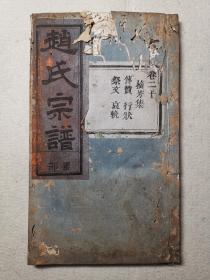 趙氏宗譜
卷二十
摛芳集
傳贊 行狀
祭文 哀輓